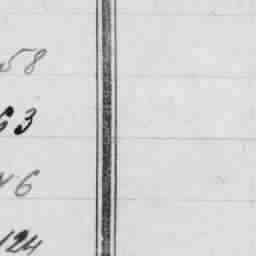 58
63
6
124